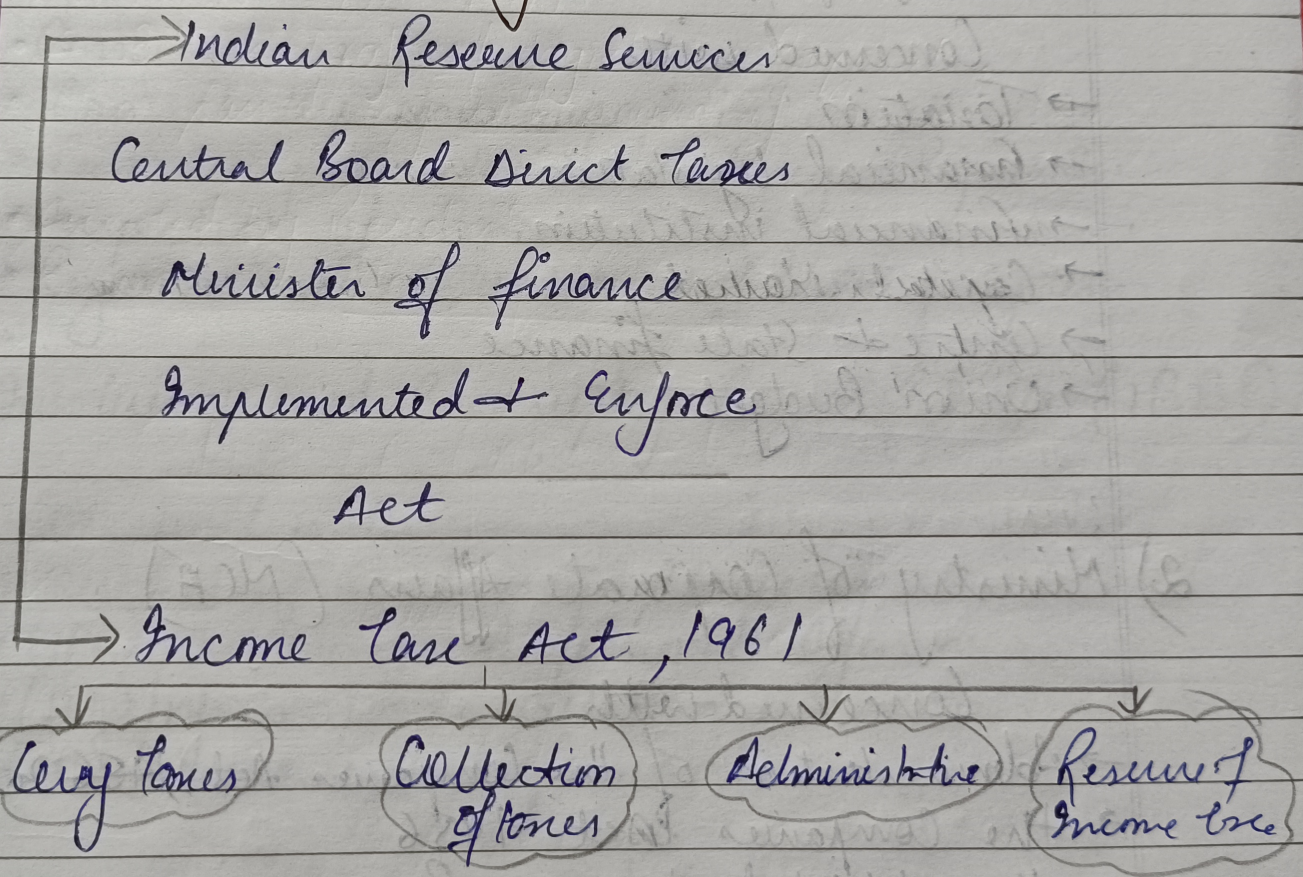 Indian Reserve Services
Central Board Direct Taxes
Minister of finance
Implemented & Enforce
Act
Income Tax Act, 1961
Levy Taxes
Collection
of taxes
Administrative
Reserve of
Income tax